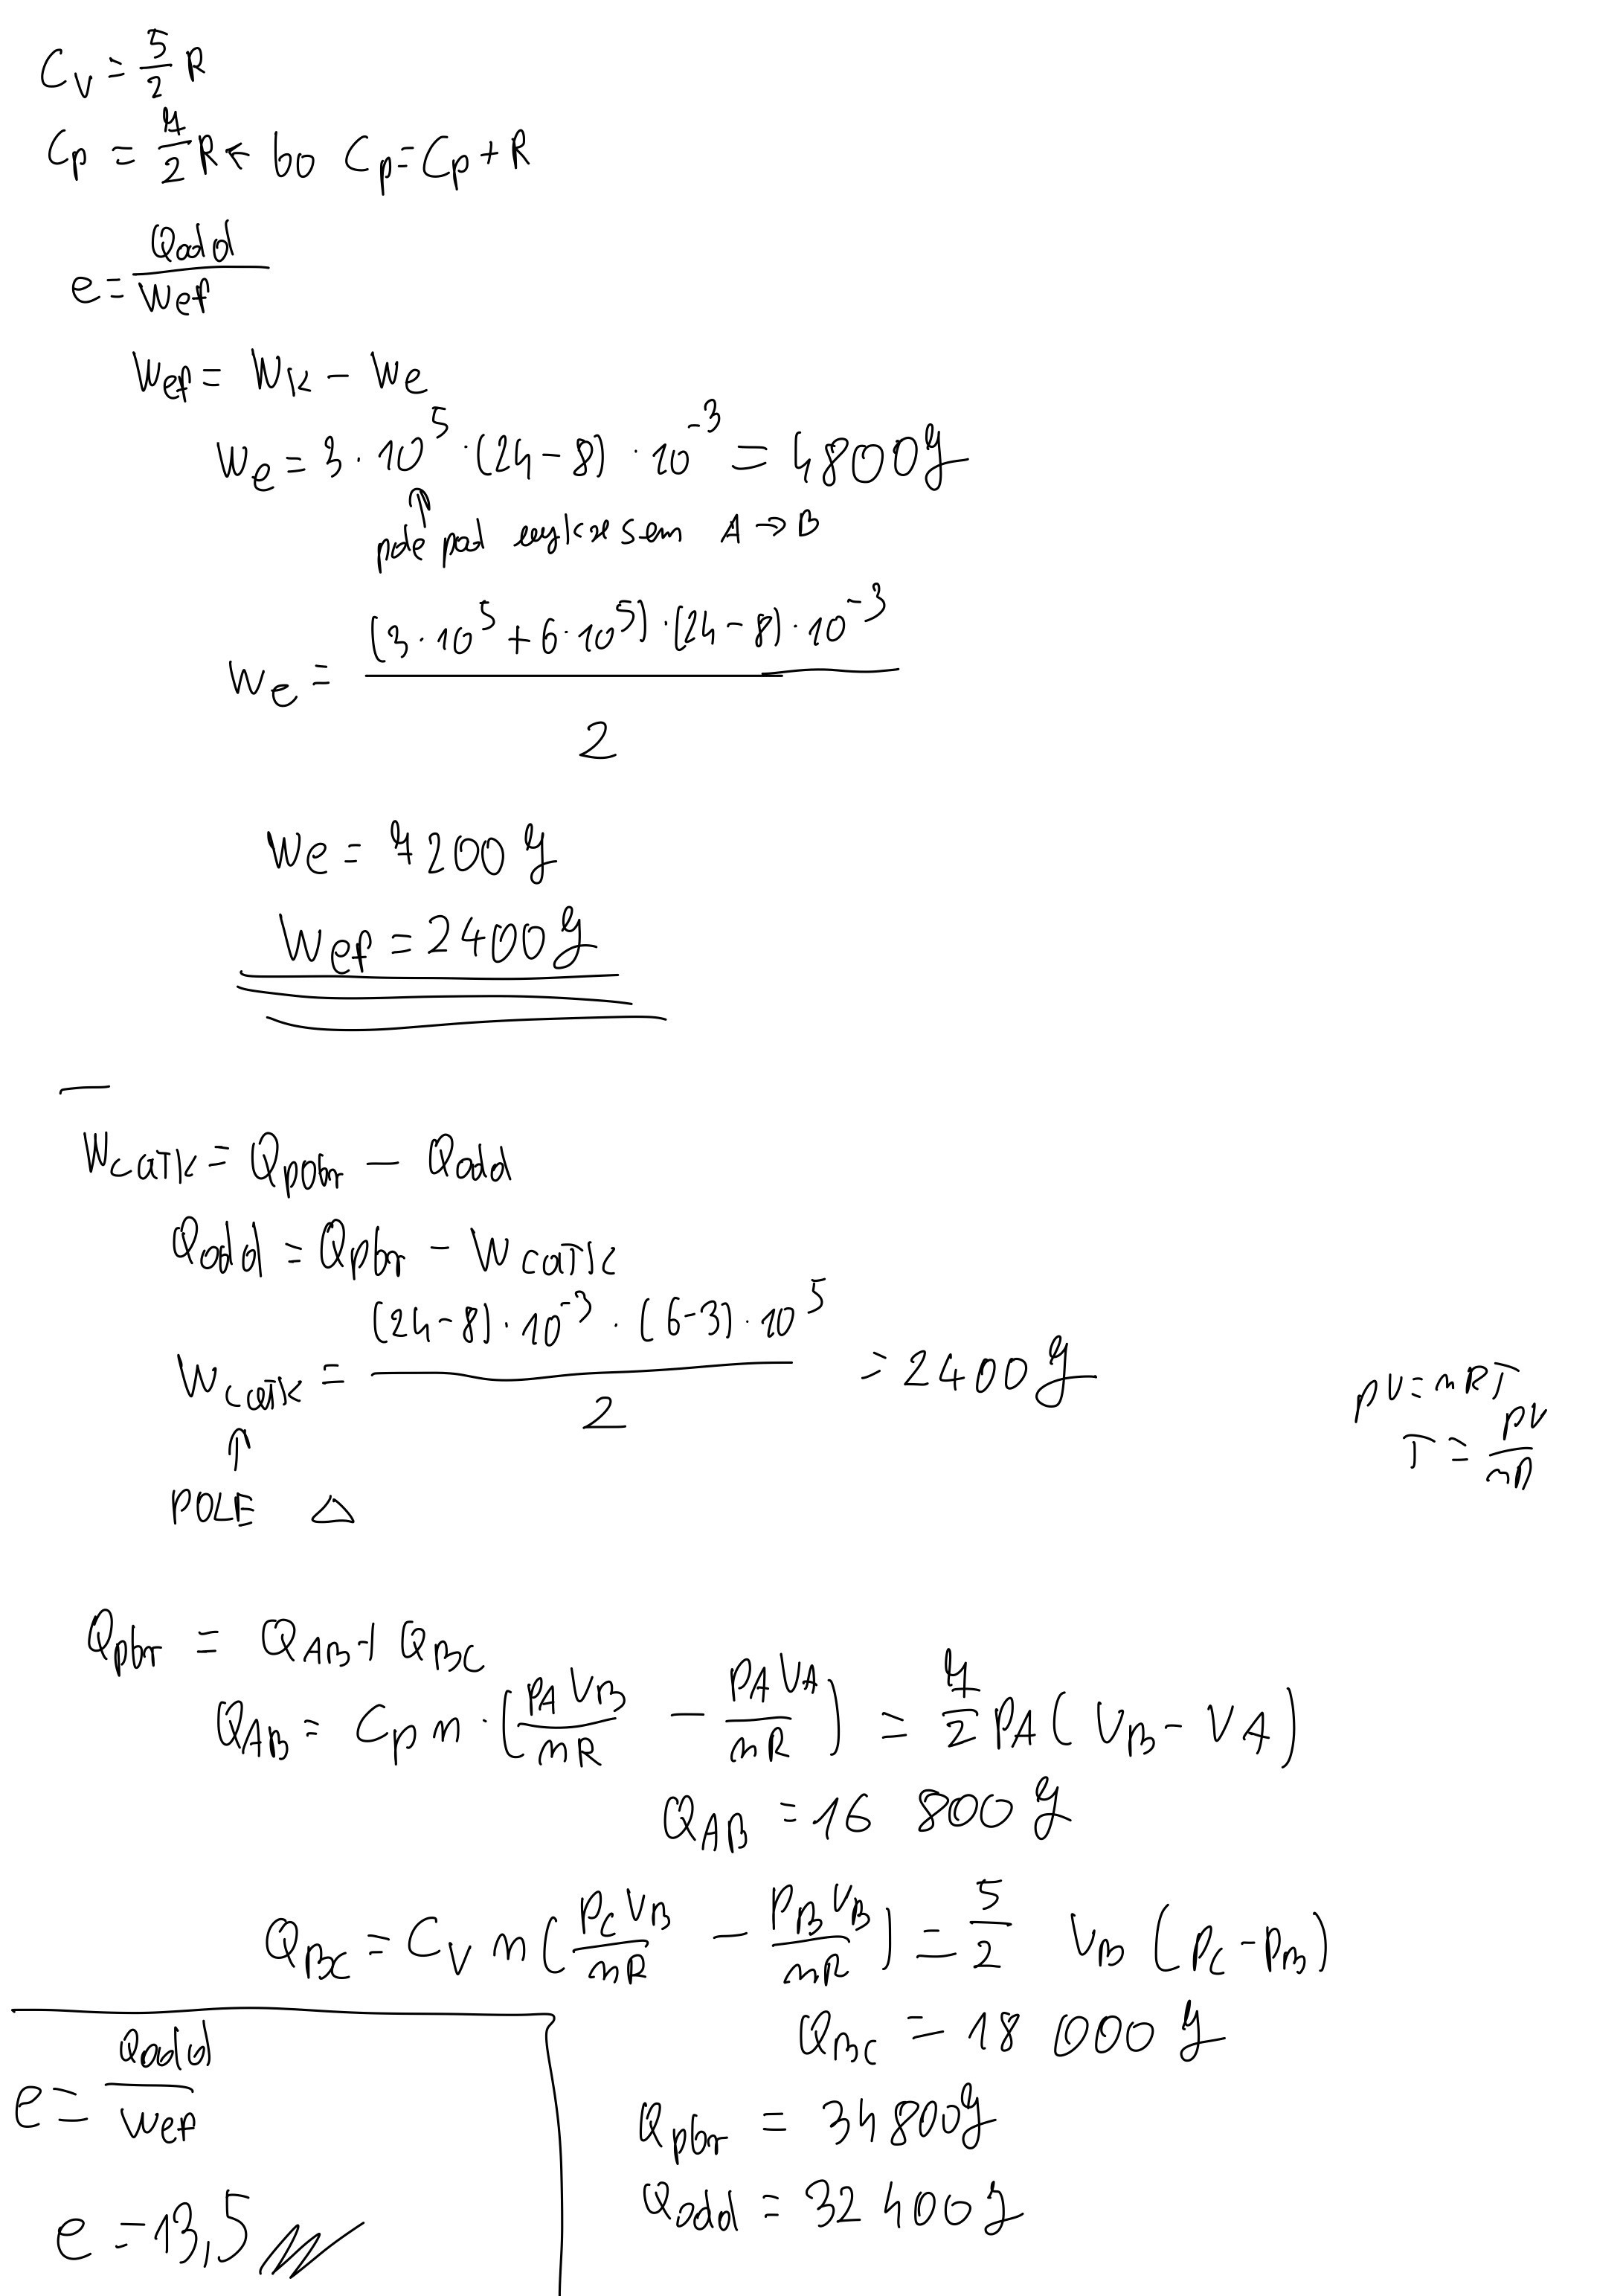 Cv = 5/2 R
Cp = 7/2 R ← bo Cp = Cp + R
e = Qodd/Wef
Wef = Wk - We
We = 3 · 10^5 · (24-8) · 10^-3 = 4800 J
↑
pole pod wykresem A → B
We = (3·10^5 + 6·10^5) · (24-8) · 10^-3 / 2
We = 7200 J
Wef = 2400 J
WCAŁK = Qpobr - Qodd
Qodd = Qpbr - WCAŁK
WCAŁK = (24-8) · 10^-3 · (6-3) · 10^5 / 2 = 2400 J
↑
POLE △
pV = nRT
T = pV/nR
Qpbr = QAB + QBC
QAB = Cp n · (pA VB/nR - pA VA/nR) = 7/2 pA (VB - VA)
QAB = 16 800 J
QBC = Cv n (pC VB/nR - pB VB/nR) = 5/2 VB (pC - pB)
QBC = 18 000 J
Qpbr = 34 800 J
Qodd = 32 400 J
e = Qodd/Wef
e = 13,5